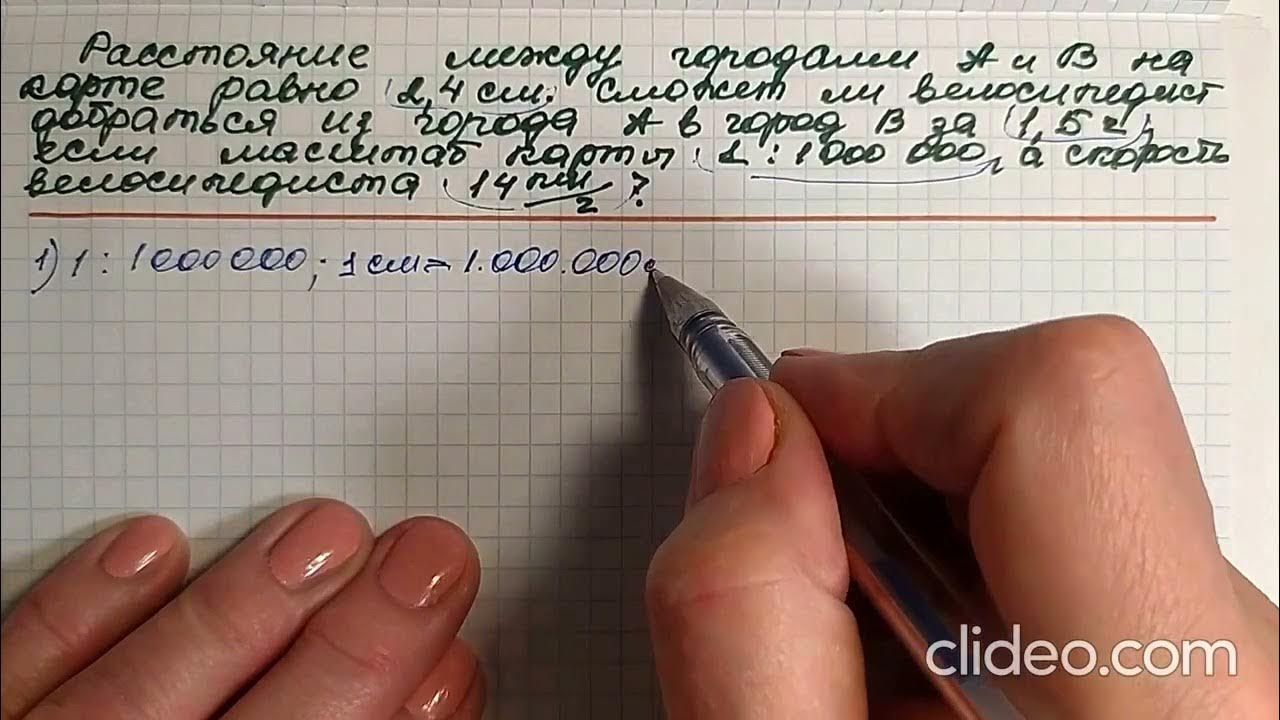 Расстояние между городами А и В на
карте равно 2,4 см. Сможет ли велосипедист
добраться из города А в город В за 1,5 ч,
если масштаб карты 1 : 1000 000, а скорость
велосипедиста 14 км/ч ?
1) 1 : 1 000 000 ; 1 см = 1.000.000 с
clideo.com